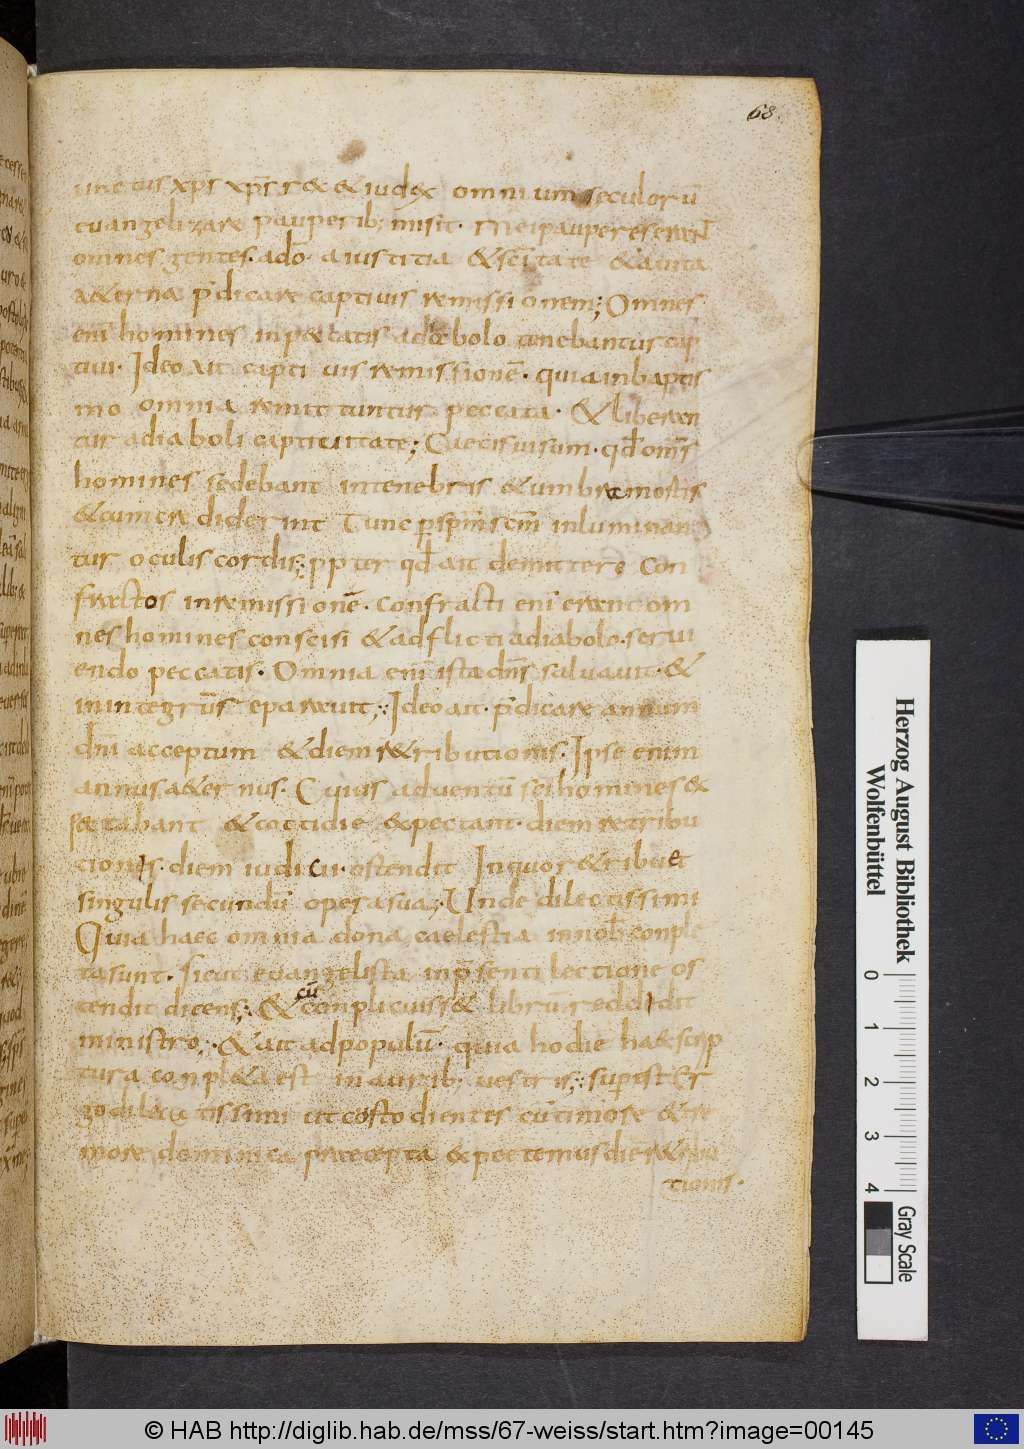 68
unctus xp̄s xp̄s r& & iud&x omnium seculorū
euangelizare pauperib; misit. Mei pauperes erant
omnes gentes. ado a iustitia & sc̄itate & a uita
a&erna p̄dicare captiuis remissionem; Omnes
eni homines in peccatis a diabolo tenebantur cap
tiui. Ideo ait captiuis remissionē. quia in baptis
mo omnia remittuntur peccata. & liberan
tur a diaboli captiuitate; Caecis uisum. qd̄ om̄s
homines sedebant in tenebris & umbra mortis
& cum crediderint Tunc p̄ sp̄m sc̄m inluminan
tur oculis cordis; ppter qd̄ ait demittere con
fractos in remissionē. confracti eni erant om
nes homines conscisi & adflicti a diabolo. serui
endo peccatis. Omnia eni ista dn̄s saluauit. &
in integrūs reparauit; Ideo ait. p̄dicare annum
dn̄i acceptum & diem r&ributionis. Ipse enim
annus a&ernus. Cuius aduentū sc̄i homines &
spectabant & coctidie &pectant. diem retribu
cionis. diem iudicii. ostendit In quo r&ribuet
singulis secundū opera sua; Unde dilectissimi
Quia haec omnia dona caelestia in nob̄ conple
ta sunt. sicut euangelista in p̄senti lectione os
tendit dicens; & cū conplicuiss& librū reddidit
ministro; & ait ad populū. quia hodie haec scrip
tura conpl&a est in aurib; uestris; sup̄est Er
go dilectissimi ut costodientes cū timore & tre
more dominica praecepta &pectemus diē r&ribu
tionis.
Herzog August Bibliothek
Wolfenbüttel
0 1 2 3 4
Gray Scale
© HAB http://diglib.hab.de/mss/67-weiss/start.htm?image=00145